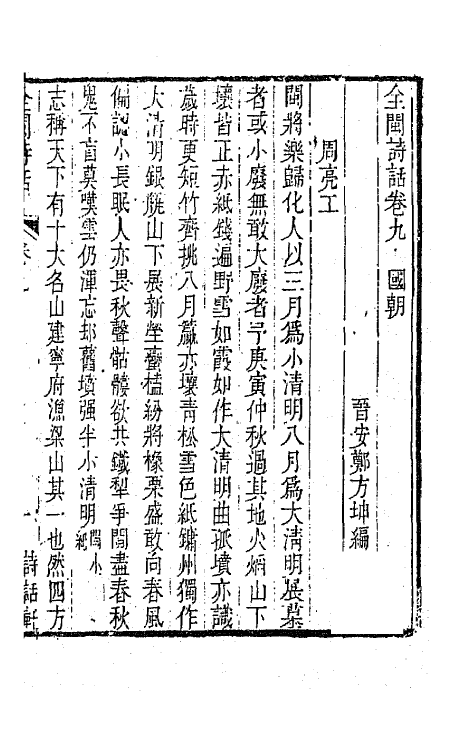 全閩詩話卷九 國朝
晉安鄭方坤編
周亮工
閩將樂歸化人以三月為小清明八月為大清明展墓
者或小廢無敢大廢者予庚寅仲秋過其地火烟山下
壤皆正赤紙錢遍野雪如霞如作大清明曲孤墳亦識
歲時更短竹齊挑八月簫亦壤青松雪色紙鏞州獨作
大清明銀䃶山下展新塋蠻榼紛將橡栗盛敢向春風
偏認小長眠人亦畏秋聲骷髏欲共鐵犁爭閱盡春秋
鬼不盲莫嘆雲仍渾忘却舊墳强半小清明閩小紙
志稱天下有十大名山建寧府漁梁山其一也然四方
全閩詩話 卷九 一 詩話軒